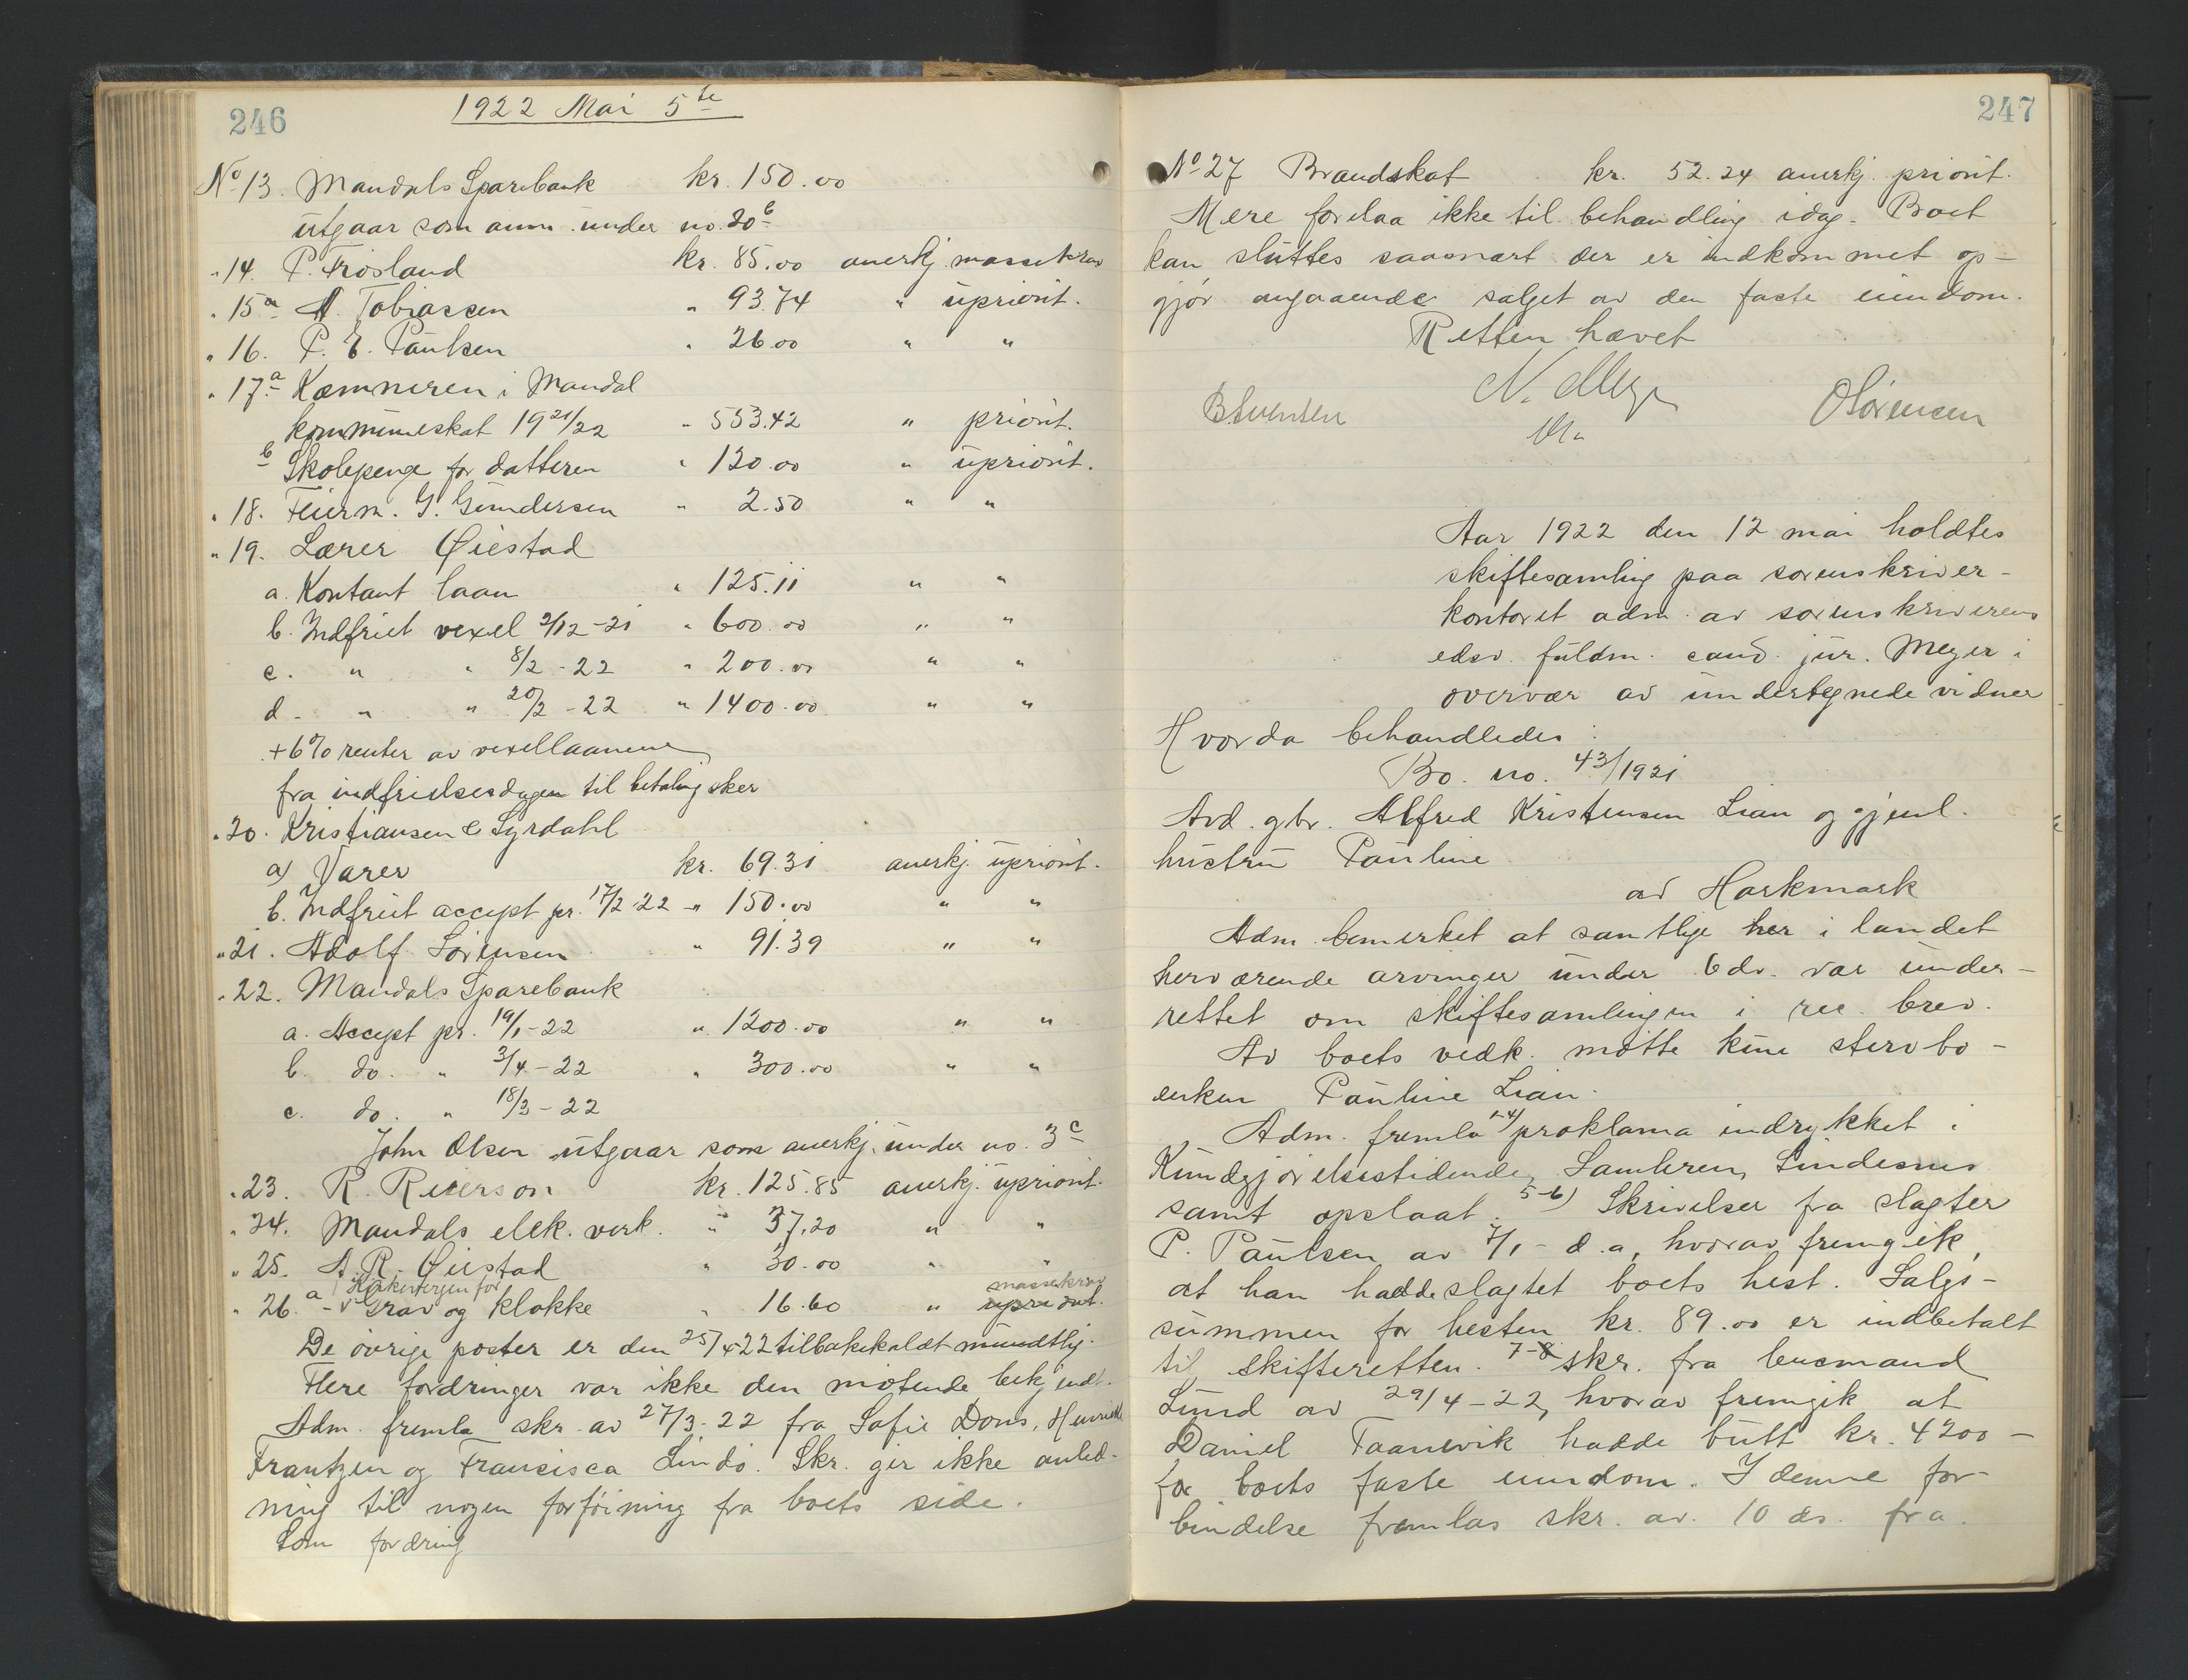 246
1922 Mai 5te
No 13. Mandals Sparebank kr. 150.00
utgaar som anm. under no. 20b
" 14. P. Frøsland kr. 85.00 anerkj. massekrav
" 15a A. Tobiassen " 93.74 " upriorit.
" 16. P. E. Paulsen " 26.00 " "
" 17a Kæmneren i Mandal
kommuneskat 1921/22 " 553.42 " priorit.
b Skolepenge for datteren " 120.00 " upriorit.
" 18. Feierm. G. Gundersen " 2.50 " "
" 19. Lærer Øiestad
a. Kontant laan " 125.11 " "
b. Indfriet vexel 2/12-21 " 600.00 " "
c. " " 8/2-22 " 200.00 " "
d. " " 20/2-22 " 1400.00 " "
+ 6% renter av vexellaanene
fra indfrielsesdagen til betaling sker
" 20. Kristiansen & Syrdahl
a) Varer kr. 69.31 anerkj. upriorit.
b. Indfriet accept pr. 17/2-22 " 150.00 " "
" 21. Adolf Sørensen " 91.39 " "
" 22. Mandals Sparebank
a. Accept pr. 19/1-22 " 1200.00 " "
b. do. " 3/4-22 " 300.00 " "
c. do. " 18/3-22
John Olsen utgaar som anerkj. under no. 3c
" 23. R. Reierson kr. 125.85 anerkj. upriorit.
" 24. Mandals elek. verk. " 37.20 " "
" 25. A. R. Øiestad " 30.00 " "
a Kirkevergen for massekrav
" 26. Grav og klokke " 16.60 " upriorit.
De øvrige poster er den 25/4-22 tilbakekaldt mundtlig.
Flere fordringer var ikke den møtende bekjendt.
Adm. fremla skr. av 27/3-22 fra Sofie Dons, Henriette
Frantzen og Francisca Lindø. Skr. gir ikke anled-
ning til nogen forføining fra boets side.
Som fordring
247
No 27 Brandskat kr. 52.24 anerkj. priorit.
Mere forelaa ikke til behandling idag. Boet
kan sluttes saasnart der er indkommet op-
gjør angaaende salget av den faste eiendom.
Retten hævet
N. Meyer
B. Svensen O Sørensen
Aar 1922 den 12 mai holdtes
skiftesamling paa sorenskriver-
kontoret adm. av sorenskriverens
edsv. fuldm. cand. jur. Meyer i
overvær av undertegnede vidner
Hvorda behandledes:
Bo. no. 43/1921
Avd. gbr. Alfred Kristensen Lian og gjenl.
hustru Pauline
av Harkmark
Adm. bemerket at samtlige her i landet
herværende arvinger under 6 ds. var under-
rettet om skiftesamlingen i rec. brev.
Av boets vedk. møtte kun stervbo-
enken Pauline Lian.
Adm. fremla 1-4) proklama indrykket i
Kundgjørelsestidende, Samleren, Lindesnes
samt opslaat. 5-6) Skrivelser fra slagter
P. Paulsen av 7/1- d.a, hvorav fremgik,
at han hadde slagtet boets hest. Salgs-
summen for hesten kr. 89.00 er indbetalt
til skifteretten. 7-8 skr. fra lensmand
Lund av 29/4-22, hvorav fremgik at
Daniel Taanevik hadde butt kr. 4200-
for boets faste eiendom. I denne for-
bindelse fremlas skr. av. 10 ds. fra